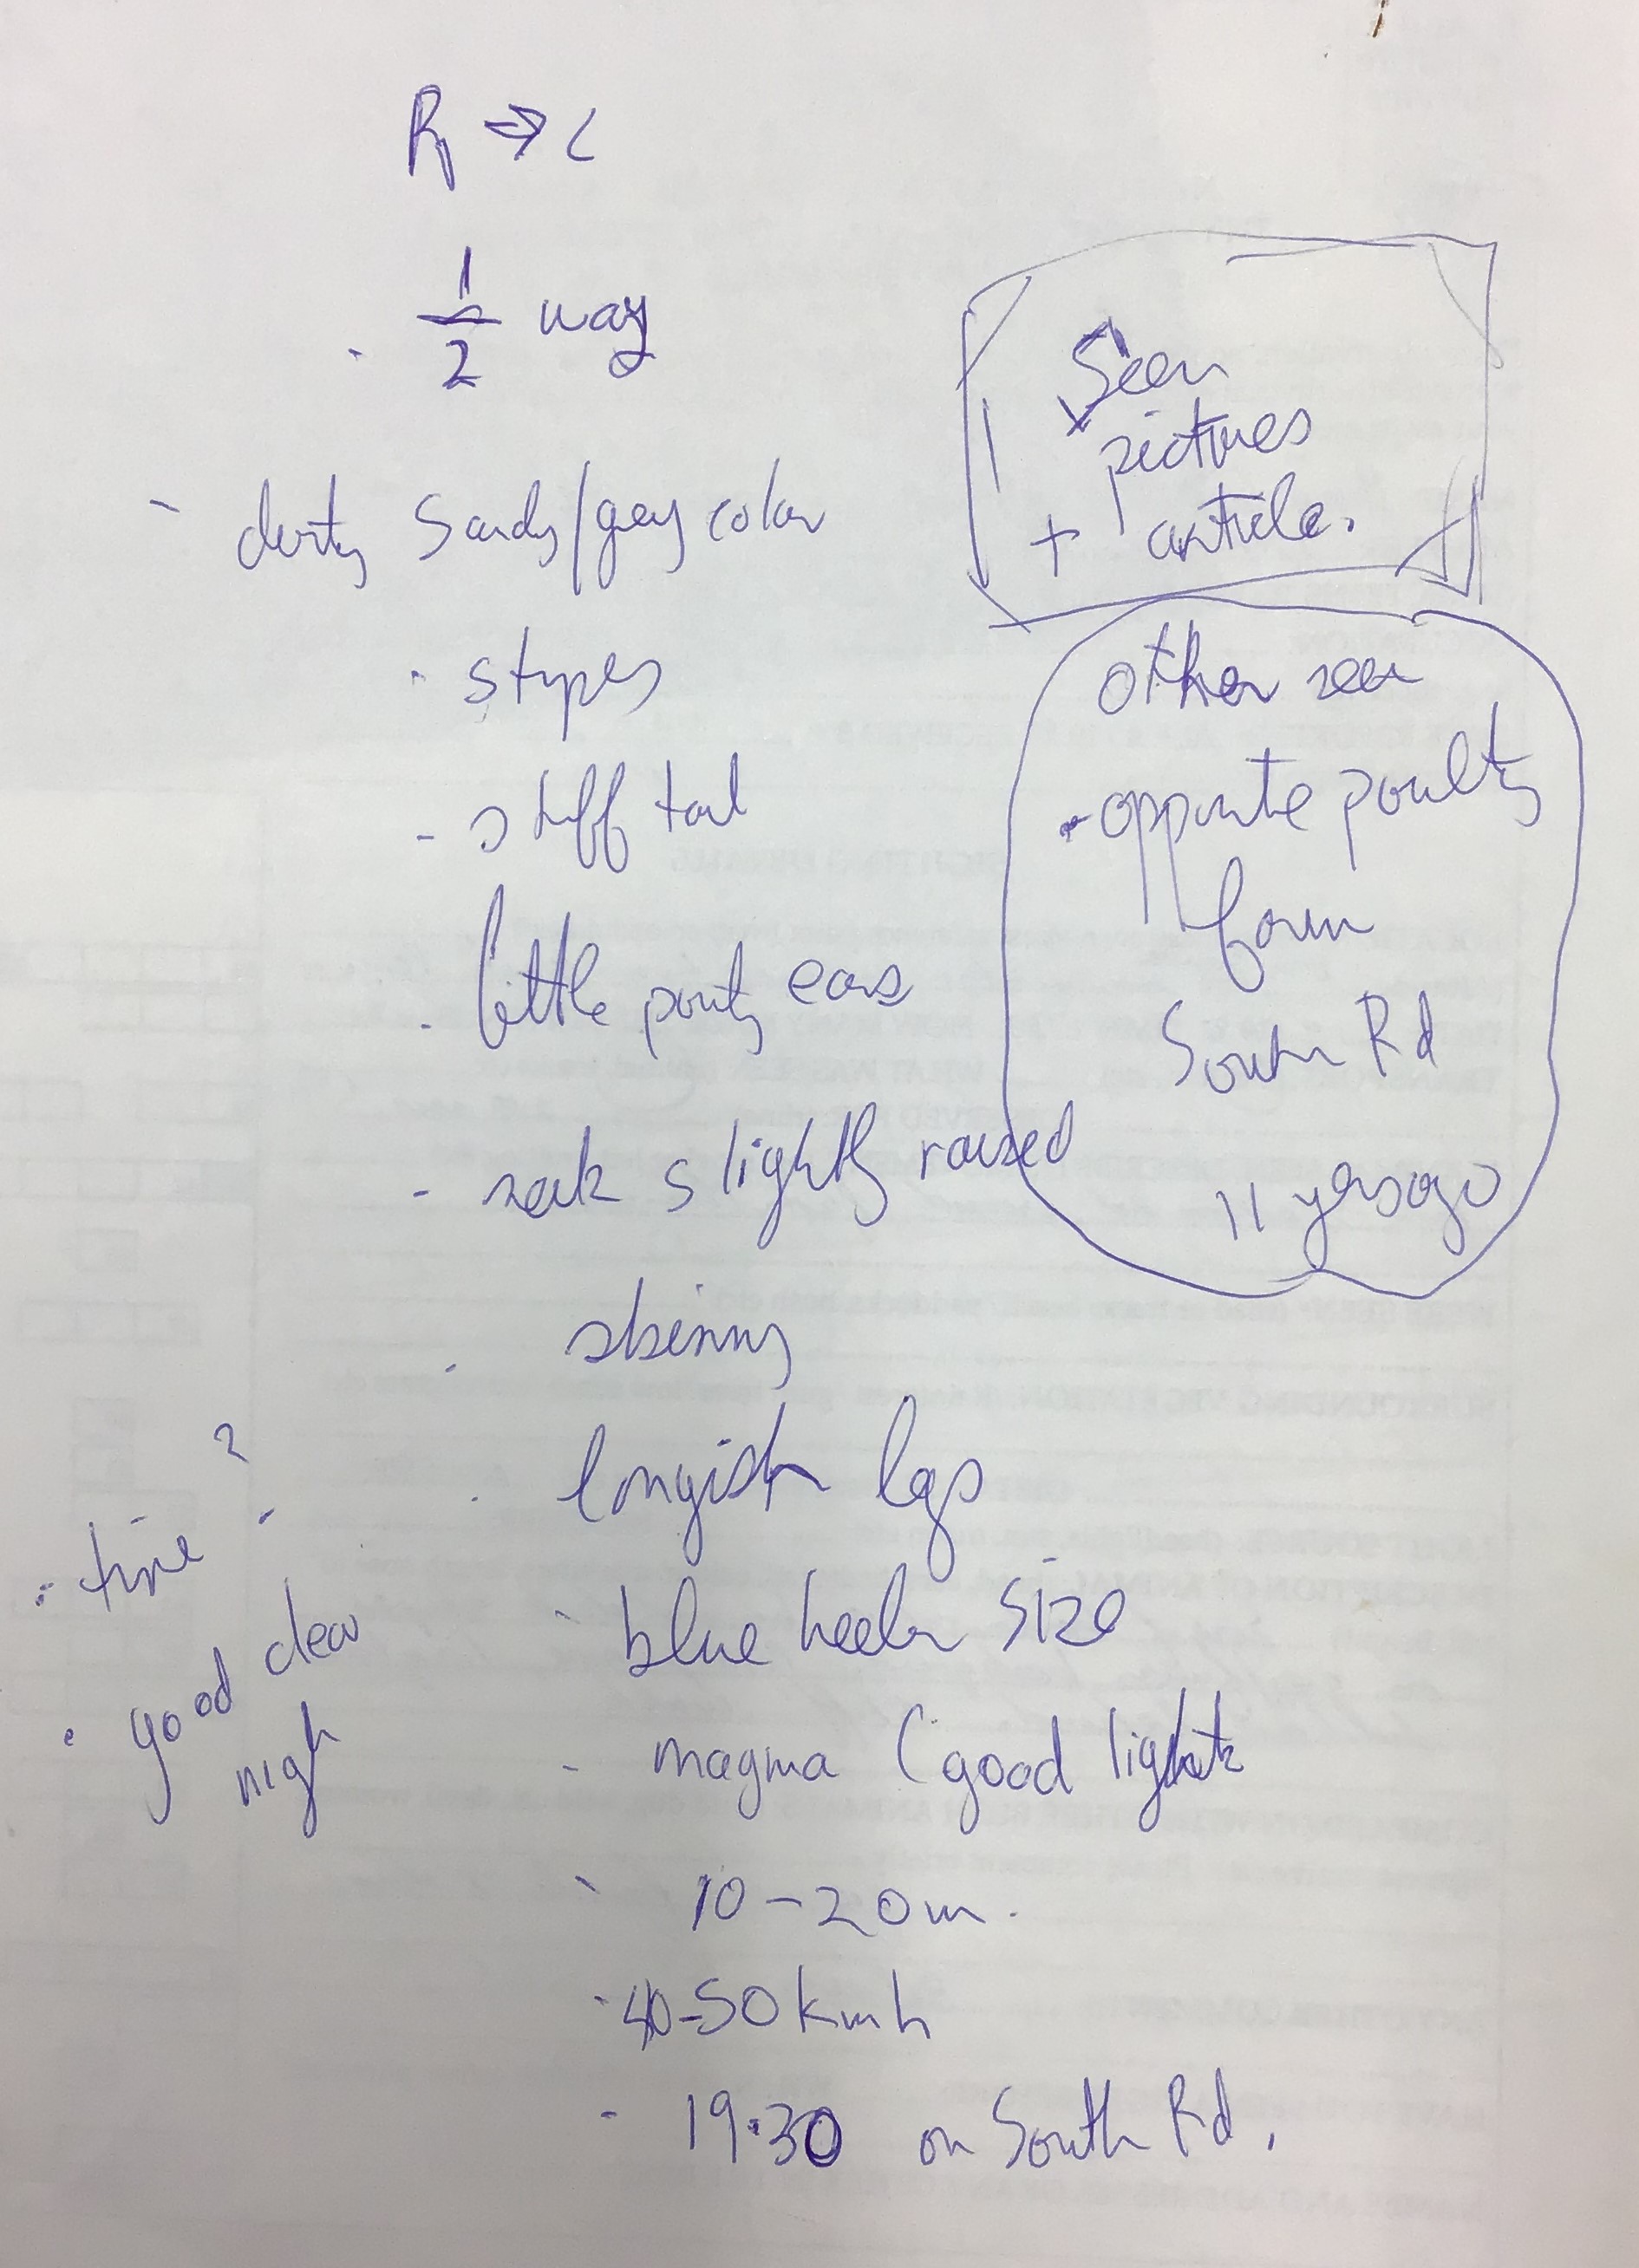 R → L
1/2 way
- dirty sandy/grey color
· stripes
- stiff tail
· little pointy ears
- neck slightly raised
· skinny
· longish legs
- blue heeler size
- magma (good lights
- 10-20m.
- 40-50 kmh
- 19.30 on South Rd.
Seen
pictures
+ article.
other seen
- opposite poultry
farm
South Rd
11 yrs ago
?
: time -
· good clear
nigh